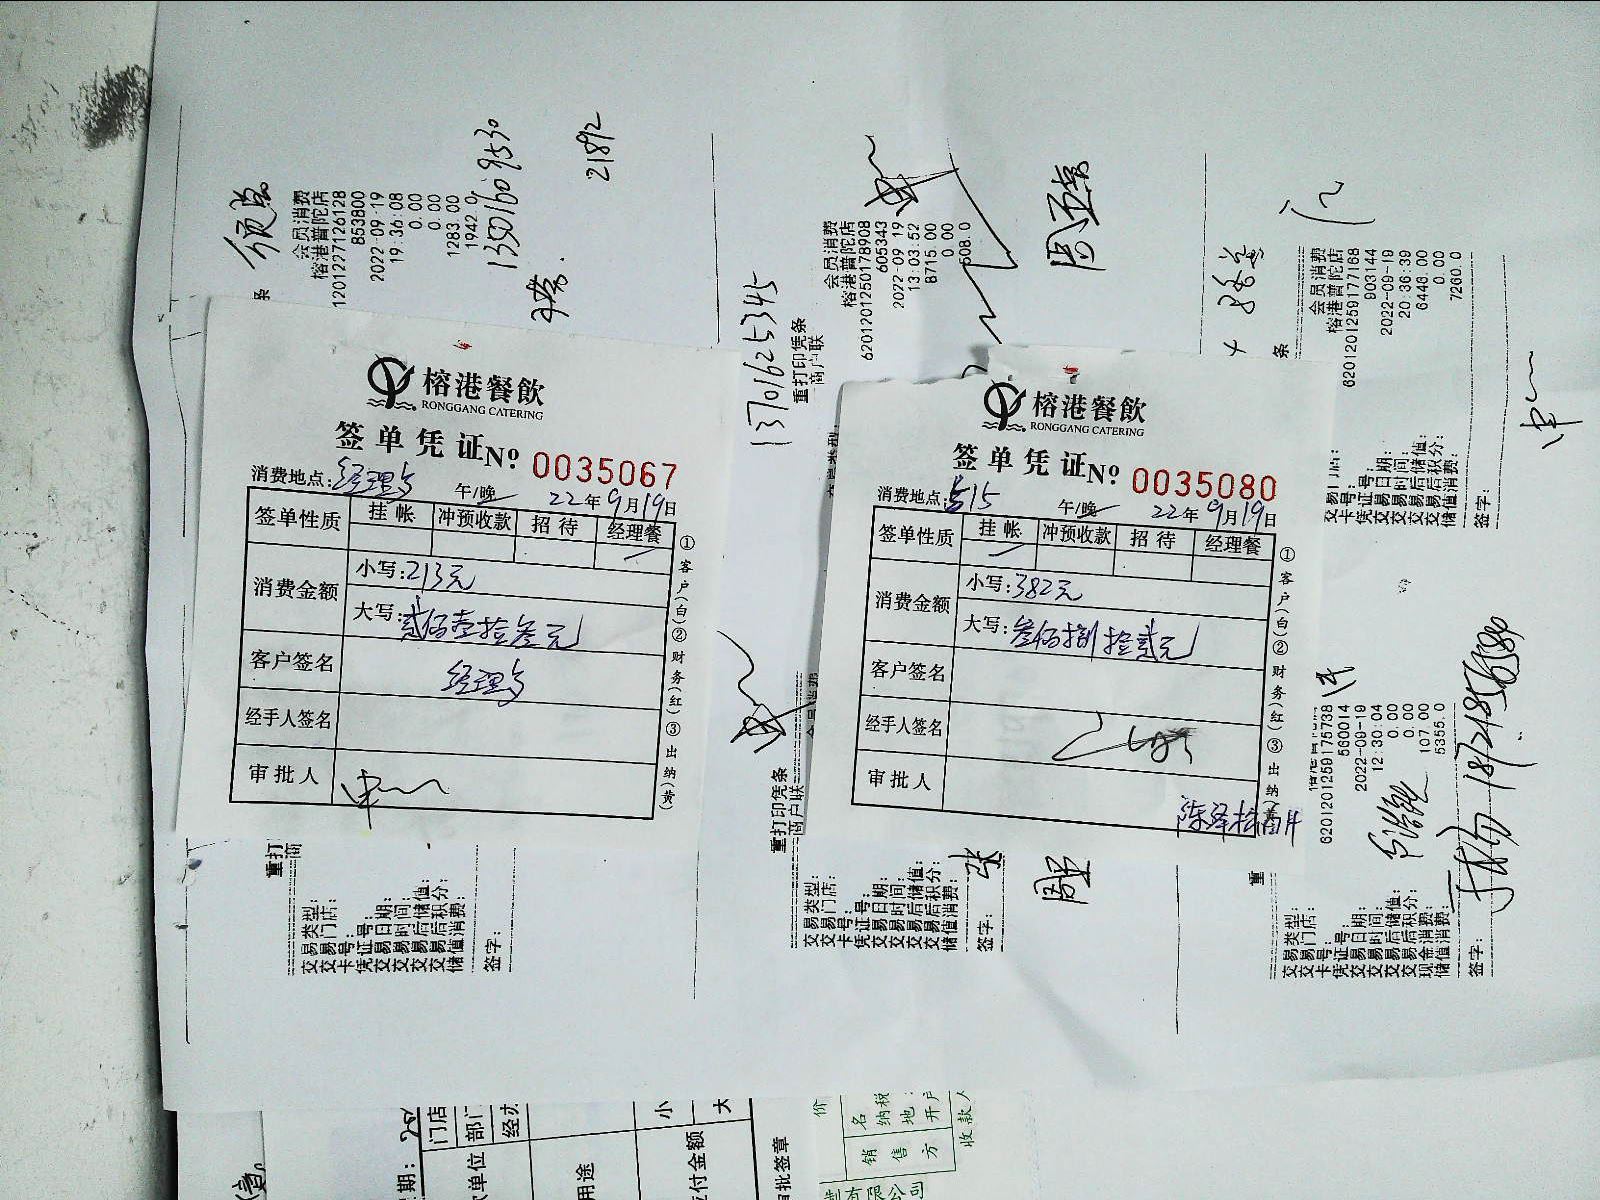 榕港餐飲
RONGGANG CATERING
签单凭证 No. 0035067
消费地点: 经理
午/晚 22年9月19日
签单性质 挂帐 冲预收款 招待 经理餐
消费金额 小写:213元
大写:贰佰壹拾叁元
客户签名 经理
经手人签名
审批人
①客户(白)②财务(红)③出纳(黄)
榕港餐飲
RONGGANG CATERING
签单凭证 No. 0035080
消费地点: 515
午/晚 22年9月19日
签单性质 挂帐 冲预收款 招待 经理餐
消费金额 小写:382元
大写:叁佰捌拾贰元
客户签名
经手人签名
审批人
①客户(白)②财务(红)③出纳(黄)
会员消费
榕港普陀店
1201227126128
853800
2022-09-19
19:36:08
0.00
0.00
1283.00
1942.0
21892
重打
商
交易类型:
交易门店:
卡号:
凭证号:
交易日期:
交易时间:
交易后储值:
交易后积分:
储值消费:
签字:
13701625345
重打印凭条
商户联
会员消费
榕港普陀店
6201201250178908
605343
2022-09-19
13:03:52
8715.00
0.00
508.0
重打印凭条
商户联
交易类型:
交易门店:
卡号:
凭证号:
交易日期:
交易时间:
交易后储值:
交易后积分:
储值消费:
签字:
条
会员消费
榕港普陀店
6201201259177168
903144
2022-09-19
20:36:39
6448.00
0.00
7260.0
交易门店:
卡号:
凭证号:
交易日期:
交易时间:
交易后储值:
交易后积分:
储值消费:
签字:
6201201259175738
560014
2022-09-19
12:30:04
0.00
0.00
107.00
5355.0
重
交易类型:
交易门店:
卡号:
凭证号:
交易日期:
交易时间:
交易后储值:
交易后积分:
现金消费:
储值消费:
签字:
18721856380
期:
门店
部门
经办
单位
用途
小
大
付金额
批签章
价
名
纳税
地
开户
销售方
收款人
制有限公司